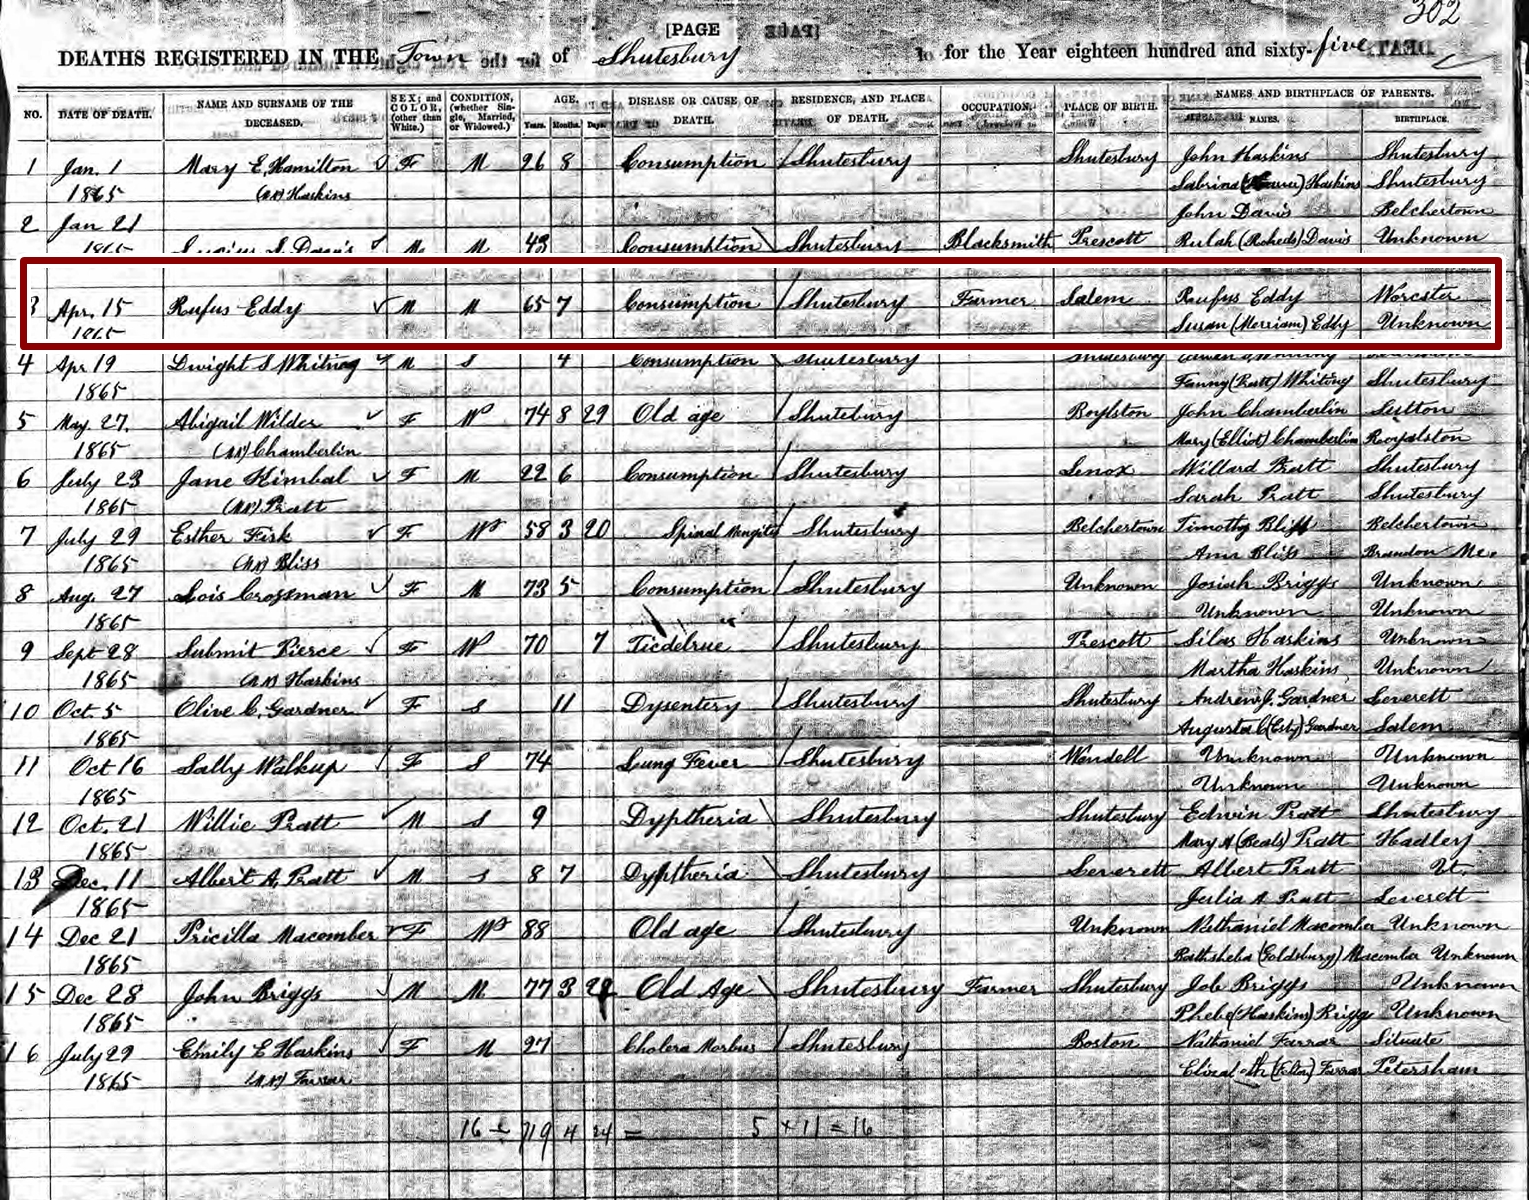 302
[PAGE
DEATHS REGISTERED IN THE Town of Shutesbury for the Year eighteen hundred and sixty-five
NO. DATE OF DEATH. NAME AND SURNAME OF THE DECEASED. SEX; and COLOR, (other than White.) CONDITION, (whether Single, Married, or Widowed.) AGE. Years. Months. Days. DISEASE OR CAUSE OF DEATH. RESIDENCE, AND PLACE OF DEATH. OCCUPATION. PLACE OF BIRTH. NAMES AND BIRTHPLACE OF PARENTS. NAMES. BIRTHPLACE.
1 Jan. 1 Mary E. Hamilton F M 26 8 Consumption Shutesbury Shutesbury John Haskins Shutesbury
1865 (M N) Haskins Sabrina Haskins Shutesbury
2 Jan 21 John Davis Belchertown
1865 Lucius S. Davis M M 43 Consumption Shutesbury Blacksmith Prescott Rulah (Roheds) Davis Unknown
3 Apr. 15 Rufus Eddy M M 65 7 Consumption Shutesbury Farmer Salem Rufus Eddy Worcester
1865 Susan (Merriam) Eddy Unknown
4 Apr 19 Dwight S Whitney M S 4 Consumption Shutesbury Shutesbury
1865 Fanny (Pratt) Whitney Shutesbury
5 May 27. Abigail Wilder F W 74 8 29 Old age Shutebury Boylston John Chamberlin Sutton
1865 (M N) Chamberlin Mary (Elliot) Chamberlin Royalston
6 July 23 Jane Kimbal F M 22 6 Consumption Shutesbury Lenox Willard Pratt Shutesbury
1865 (M N) Pratt Sarah Pratt Shutesbury
7 July 29 Esther Fisk F W 58 3 20 Spinal Mengites Shutesbury Belchertown Timothy Bliss Belchertown
1865 (M N) Bliss Ann Bliss Brandon Me.
8 Aug. 27 Lois Crossman F M 73 5 Consumption Shutesbury Unknown Josiah Briggs Unknown
1865 Unknown Unknown
9 Sept 28 Submit Pierce F W 70 7 Ticdelrue Shutesbury Prescott Silas Haskins Unknown
1865 (M N) Haskins Martha Haskins Unknown
10 Oct. 5 Olive C. Gardner F S 11 Dysentery Shutesbury Shutesbury Andrew J. Gardner Leverett
1865 Augusta C (Esty) Gardner Salem
11 Oct 16 Sally Walkup F S 74 Lung Fever Shutesbury Wendell Unknown Unknown
1865 Unknown Unknown
12 Oct. 21 Willie Pratt M S 9 Dyptheria Shutesbury Shutesbury Edwin Pratt Shutesbury
1865 Mary A (Beals) Pratt Hadley
13 Dec. 11 Albert A. Pratt M S 8 7 Dyptheria Shutesbury Leverett Albert Pratt Vt.
1865 Julia A Pratt Leverett
14 Dec 21 Pricilla Macomber F W 88 Old age Shutesbury Unknown Nathaniel Macomber Unknown
1865 Bathsheba (Goldsbury) Macomber Unknown
15 Dec 28 John Briggs M M 77 3 Old Age Shutesbury Farmer Shutesbury Job Briggs Unknown
1865 Phebe (Haskins) Briggs Unknown
16 July 29 Emily E Haskins F M 27 Cholera Morbus Shutesbury Boston Nathaniel Farrar Situate
1865 (M N) Farrar Elizabeth (Felton) Farrar Petersham
16 = 719 4 24 = 5 + 11 = 16